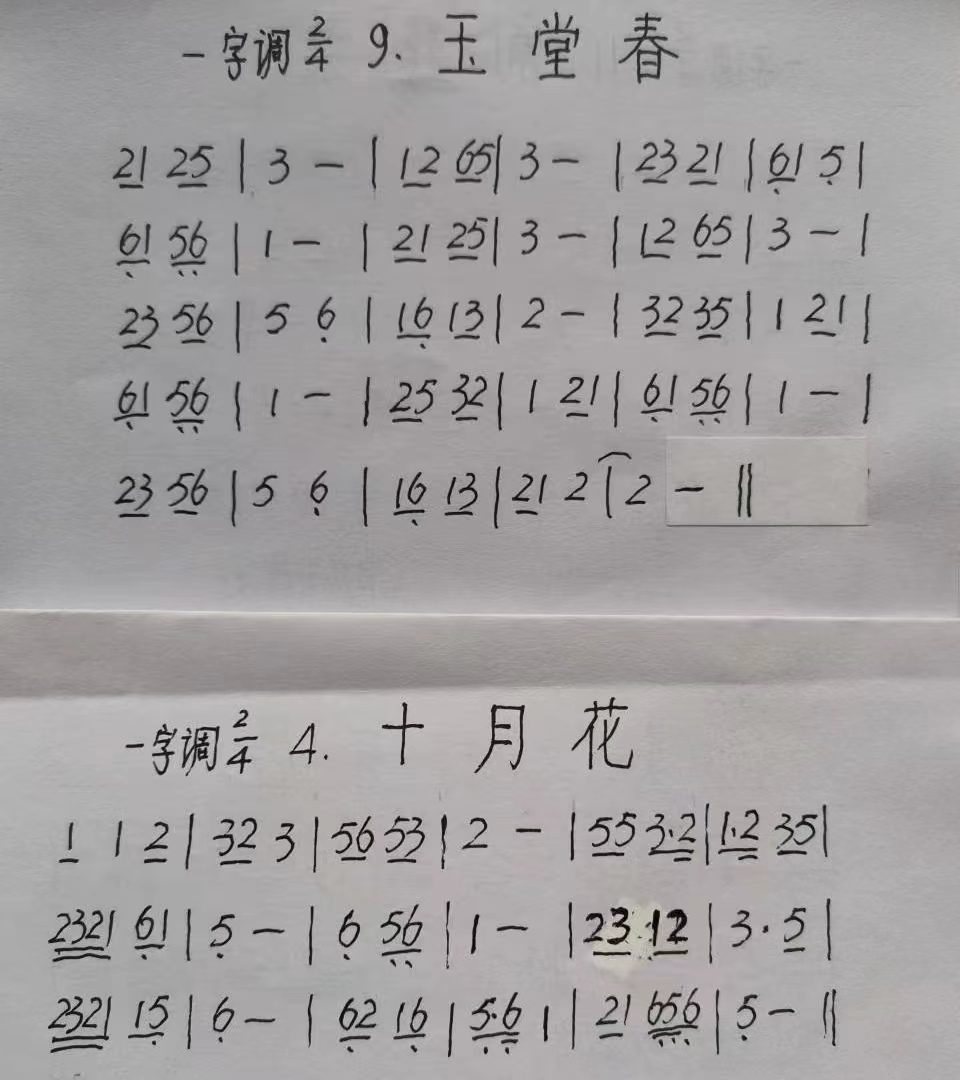 一字调 2/4 9. 玉堂春
21 25 | 3 - | 12 65 | 3 - | 23 21 | 61 5 |
61 56 | 1 - | 21 25 | 3 - | 12 65 | 3 - |
23 56 | 5 6 | 16 13 | 2 - | 32 35 | 1 21 |
61 56 | 1 - | 25 32 | 1 21 | 61 56 | 1 - |
23 56 | 5 6 | 16 13 | 21 2 | 2 - ||
一字调 2/4 4. 十月花
1 1 2 | 32 3 | 56 53 | 2 - | 55 3·2 | 1·2 35 |
2321 61 | 5 - | 6 56 | 1 - | 23 12 | 3· 5 |
2321 15 | 6 - | 62 16 | 5·6 1 | 21 656 | 5 - ||